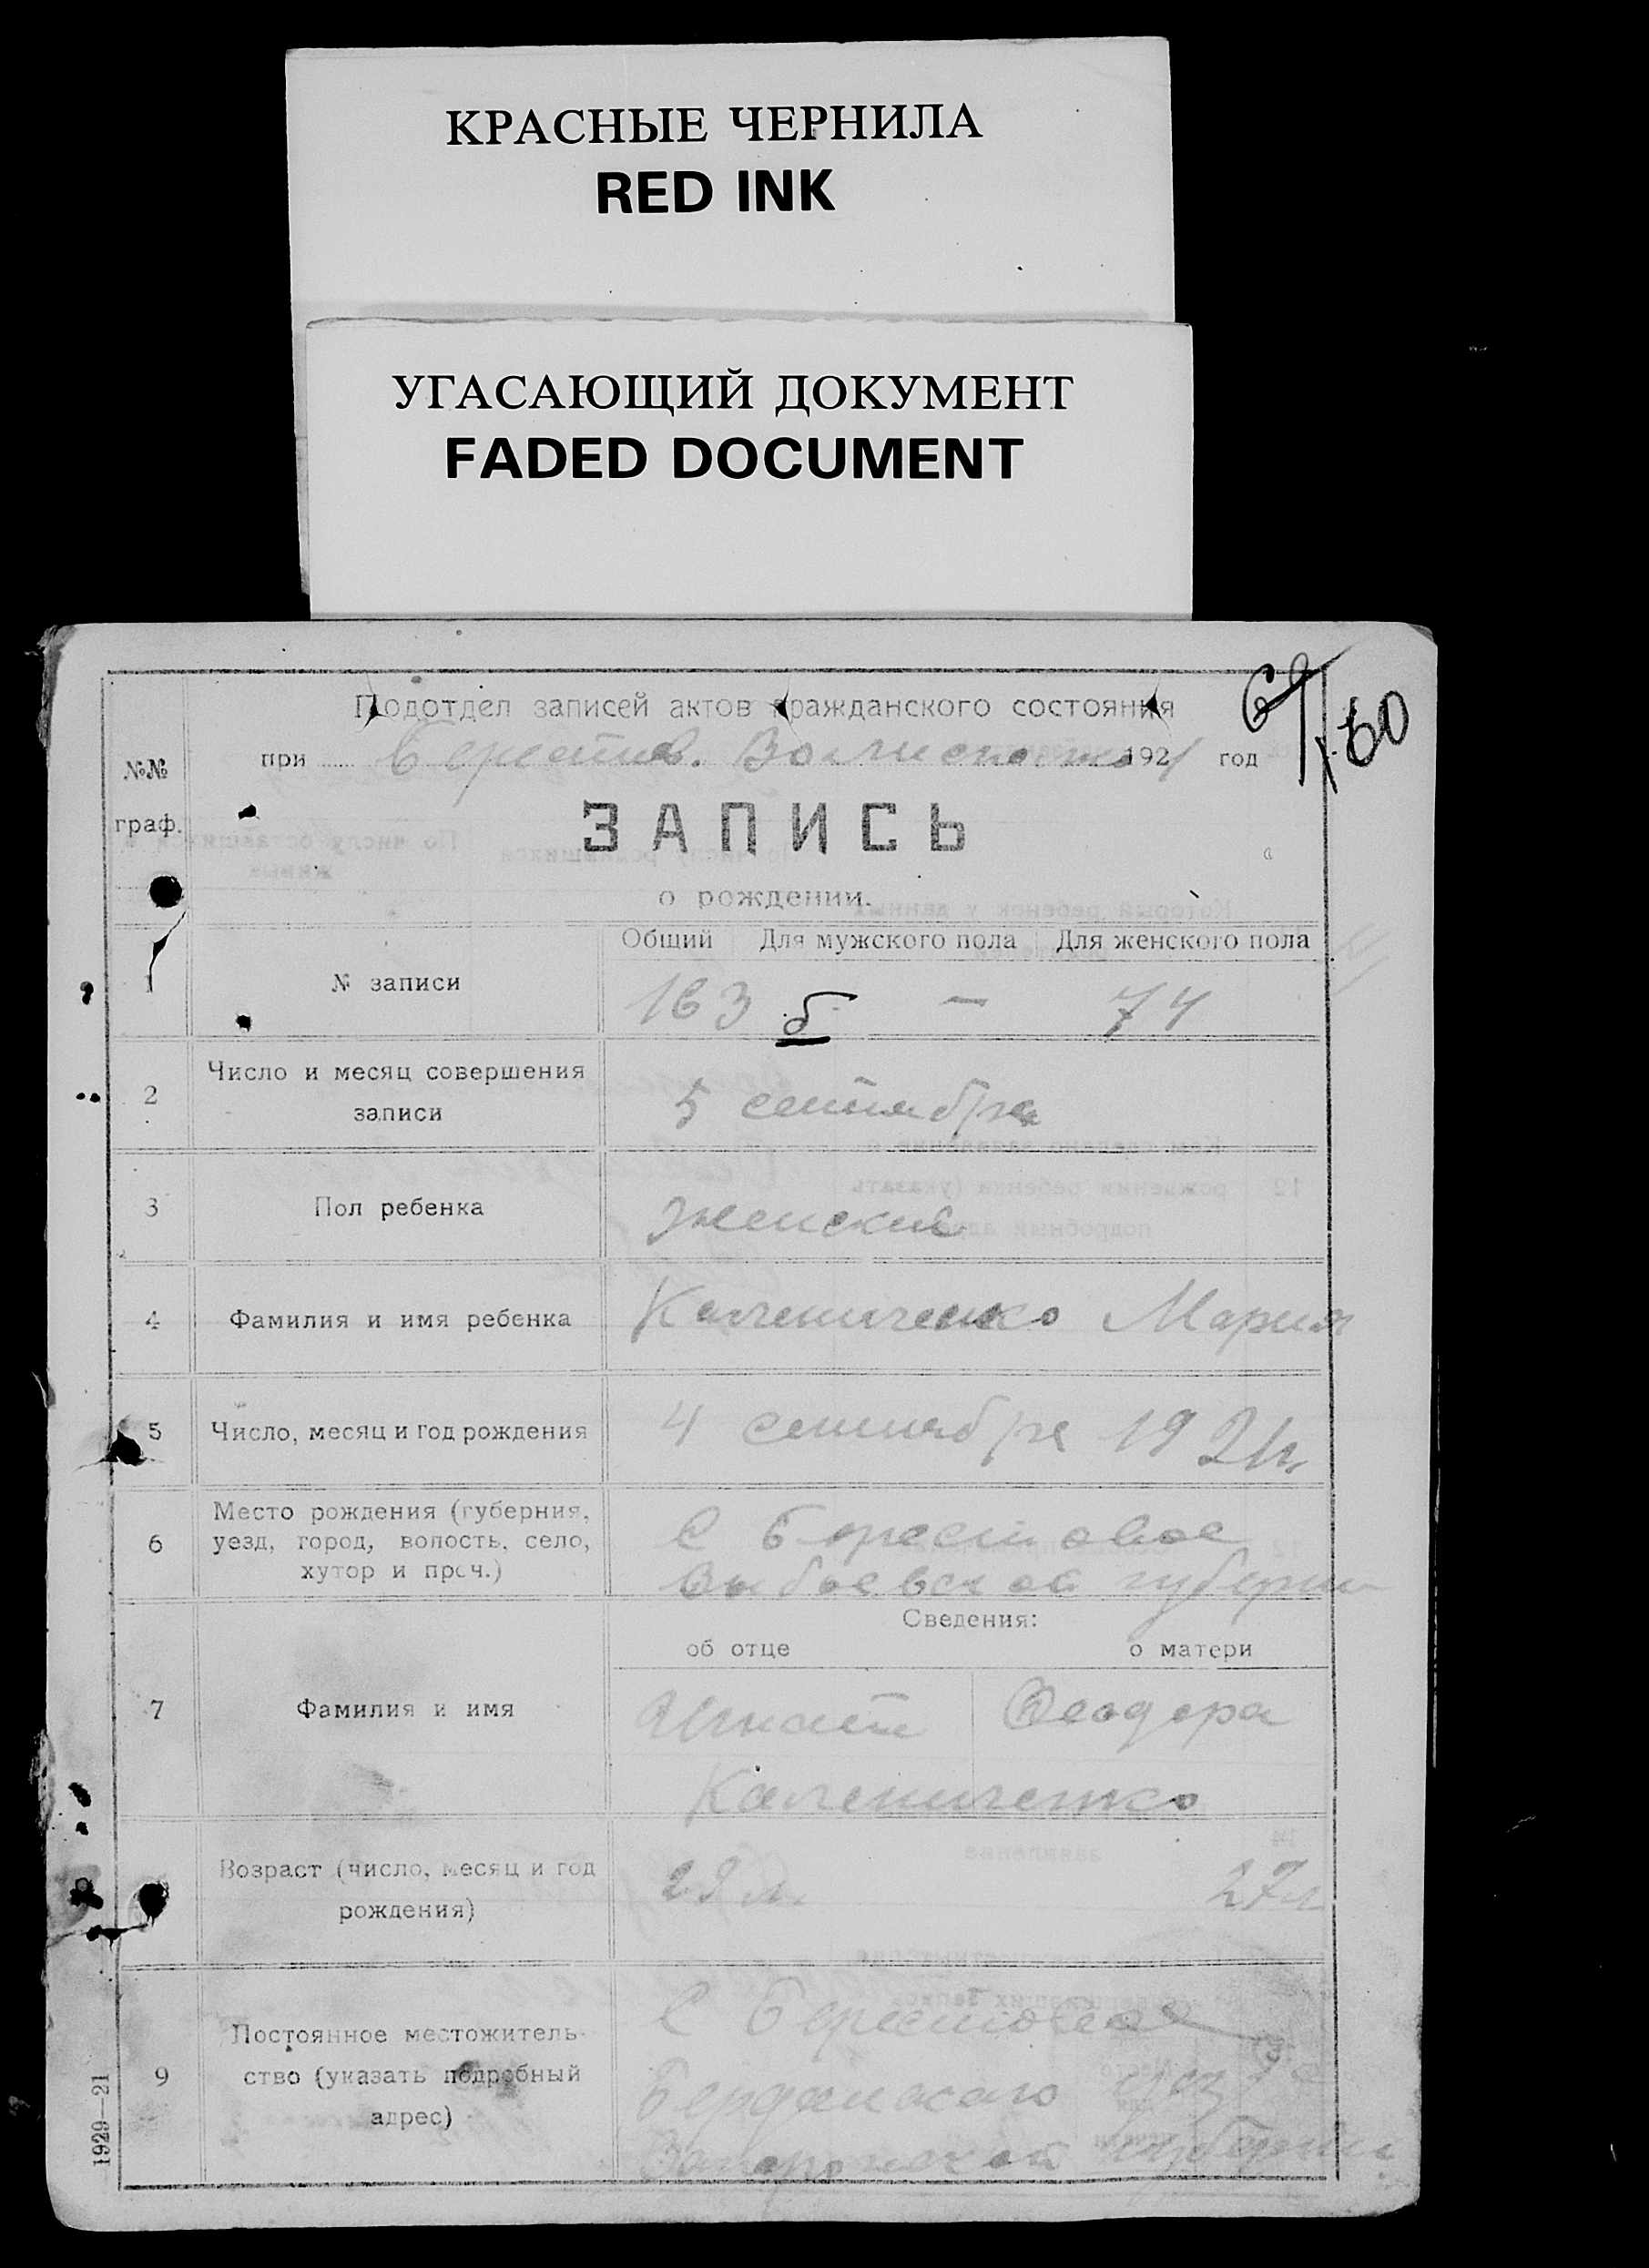 КРАСНЫЕ ЧЕРНИЛА
RED INK
УГАСАЮЩИЙ ДОКУМЕНТ
FADED DOCUMENT
Подотдел записей актов гражданского состояния
60
№№
граф.
при Берестов. Волисполкоме 1921 год
ЗАПИСЬ
о рождении.
Общий Для мужского пола Для женского пола
1 № записи 163 б – 74
2 Число и месяц совершения
записи
5 сентября
3 Пол ребенка женский
4 Фамилия и имя ребенка Калениченко Мария
5 Число, месяц и год рождения 4 сентября 1921г.
6 Место рождения (губерния,
уезд, город, волость, село,
хутор и проч.)
С Берестовое
губернии
Сведения:
об отце о матери
7 Фамилия и имя Игнат Феодора
Калениченко
Возраст (число, месяц и год
рождения)
29 л. 27 л
9 Постоянное местожитель-
ство (указать подробный
адрес)
С Берестовое
Бердянского уезда
Запорожской губернии
1929—21